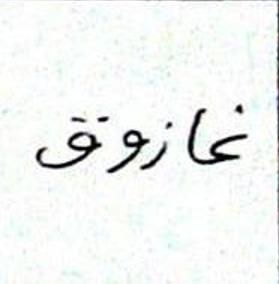 غازوتق